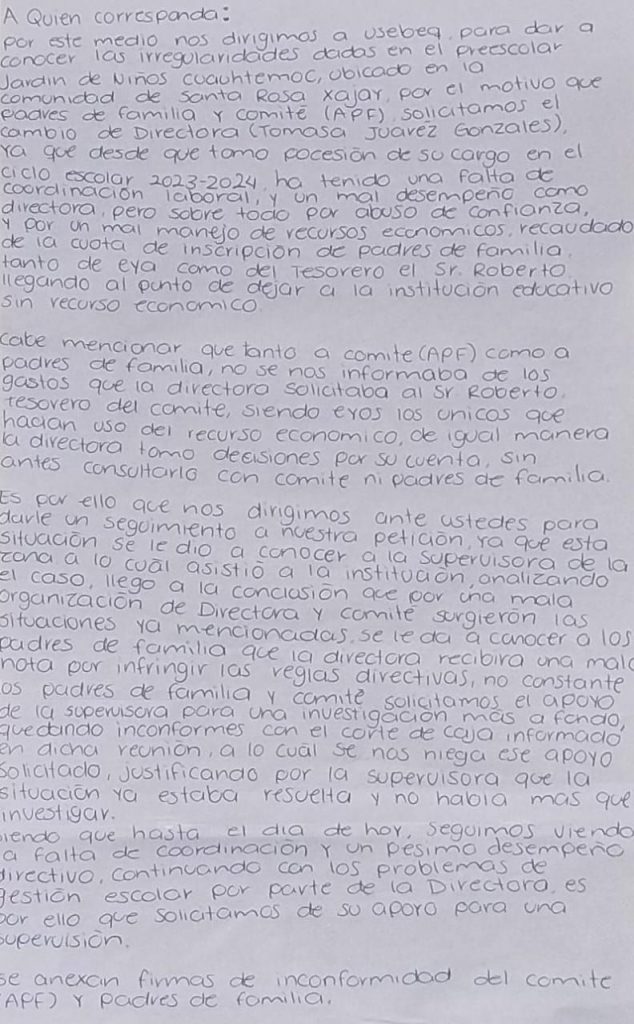 A Quien corresponda:
por este medio nos dirigimos a usebeq, para dar a
conocer las irregularidades dadas en el preescolar
Jardin de Niños cuauhtemoc, ubicado en la
comunidad de Santa Rosa Xajay, por el motivo que
padres de familia y comité (APF), solicitamos el
cambio de Directora (Tomasa Juarez Gonzales),
ya que desde que tomo pocesión de su cargo en el
ciclo escolar 2023-2024, ha tenido una falta de
coordinación laboral, y un mal desempeño como
directora, pero sobre todo por abuso de confianza,
y por un mal manejo de recursos economicos, recaudado
de la cuota de inscripción de padres de familia,
tanto de eya como del Tesorero el Sr. Roberto,
llegando al punto de dejar a la institución educativo
sin recurso economico.
cabe mencionar que tanto a comite (APF) como a
padres de familia, no se nos informaba de los
gastos que la directora solicitaba al Sr Roberto,
tesorero del comite, siendo eyos los unicos que
hacian uso del recurso economico, de igual manera
la directora tomo decisiones por su cuenta, sin
antes consultarlo con comite ni padres de familia.
Es por ello que nos dirigimos ante ustedes para
darle un seguimiento a nuestra petición, ya que esta
situación se le dio a conocer a la supervisora de la
zona a lo cual asistió a la institución, analizando
el caso, llego a la conclusión que por una mala
organización de Directora y comité surgierón las
situaciones ya mencionadas, se le da a conocer a los
padres de familia que la directora recibira una mala
nota por infringir las reglas directivas, no constante
los padres de familia y comité solicitamos el apoyo
de la supervisora para una investigación más a fondo,
quedando inconformes con el corte de caja informado
en dicha reunión, a lo cuál se nos niega ese apoyo
solicitado, justificando por la supervisora que la
situación ya estaba resuelta y no habia mas que
investigar.
iendo que hasta el dia de hoy, seguimos viendo
a falta de coordinación y un pesimo desempeño
directivo, continuando con los problemas de
gestión escolar por parte de la Directora, es
por ello que solicitamos de su apoyo para una
supervisión.
se anexan firmas de inconformidad del comite
(APF) y padres de familia.